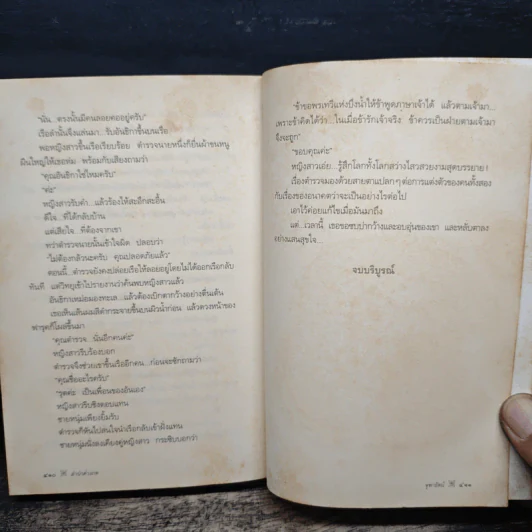 "นั่น...ตรงนั้นมีคนลอยคออยู่ครับ"
เรือลำนั้นจึงแล่นมา...รับอันธิกาขึ้นบนเรือ
พอหญิงสาวขึ้นเรือเรียบร้อย ตำรวจนายหนึ่งก็ยื่นผ้าขนหนู
ผืนใหญ่ให้เธอห่ม พร้อมกับเสียงถามว่า
"คุณอันธิกาใช่ไหมครับ"
"ค่ะ"
หญิงสาวรับคำ...แล้วร้องไห้สะอึกสะอื้น
ดีใจ...ที่ได้กลับบ้าน
แต่เสียใจ...ที่ต้องจากเขา
ทว่าตำรวจนายนั้นเข้าใจผิด ปลอบว่า
"ไม่ต้องกลัวนะครับ คุณปลอดภัยแล้ว"
ตอนนี้...ตำรวจยังคงปล่อยเรือให้ลอยอยู่โดยไม่ได้ออกเรือกลับ
ทันที แต่วิทยุเข้าไปรายงานว่าค้นพบหญิงสาวแล้ว
อันธิกาเหม่อมองทะเล...แล้วต้องเบิกตากว้างอย่างตื่นเต้น
เธอเห็นเส้นผมสีดำกระจายขึ้นบนผิวน้ำก่อน แล้วดวงหน้าของ
ฟารุตก็โผล่ขึ้นมา
"คุณตำรวจ...นั่นอีกคนค่ะ"
หญิงสาวรีบร้องบอก
ตำรวจจึงช่วยเขาขึ้นเรืออีกคน...ก่อนจะซักถามว่า
"คุณชื่ออะไรครับ"
"รุตค่ะ เป็นเพื่อนของอันเอง"
หญิงสาวรีบชิงตอบแทน
ชายหนุ่มเพียงยิ้มรับ
ตำรวจก็หันไปสนใจนำเรือกลับเข้าฝั่งแทน
ชายหนุ่มนั่งลงเคียงคู่หญิงสาว กระซิบบอกว่า
๔๒๐
"ข้าขอพรเทวีแห่งบึงน้ำให้ข้าพูดภาษาเจ้าได้ แล้วตามเจ้ามา...
เพราะข้าคิดได้ว่า...ในเมื่อข้ารักเจ้าจริง ข้าควรเป็นฝ่ายตามเจ้ามา
จึงจะถูก"
"ขอบคุณค่ะ"
หญิงสาวเอ่ย...รู้สึกโลกทั้งโลกสว่างไสวสวยงามสุดบรรยาย !
เรื่องตำรวจมองด้วยสายตาแปลกๆ ต่อการแต่งตัวของคนทั้งสอง
กับเรื่องของอนาคตว่าจะเป็นอย่างไรต่อไป
เอาไว้ค่อยแก้ไขเมื่อมันมาถึง
แต่...เวลานี้ เธอขอซบบ่ากว้างและอบอุ่นของเขา และหลับตาลง
อย่างแสนสุขใจ...
จบบริบูรณ์
๔๒๑